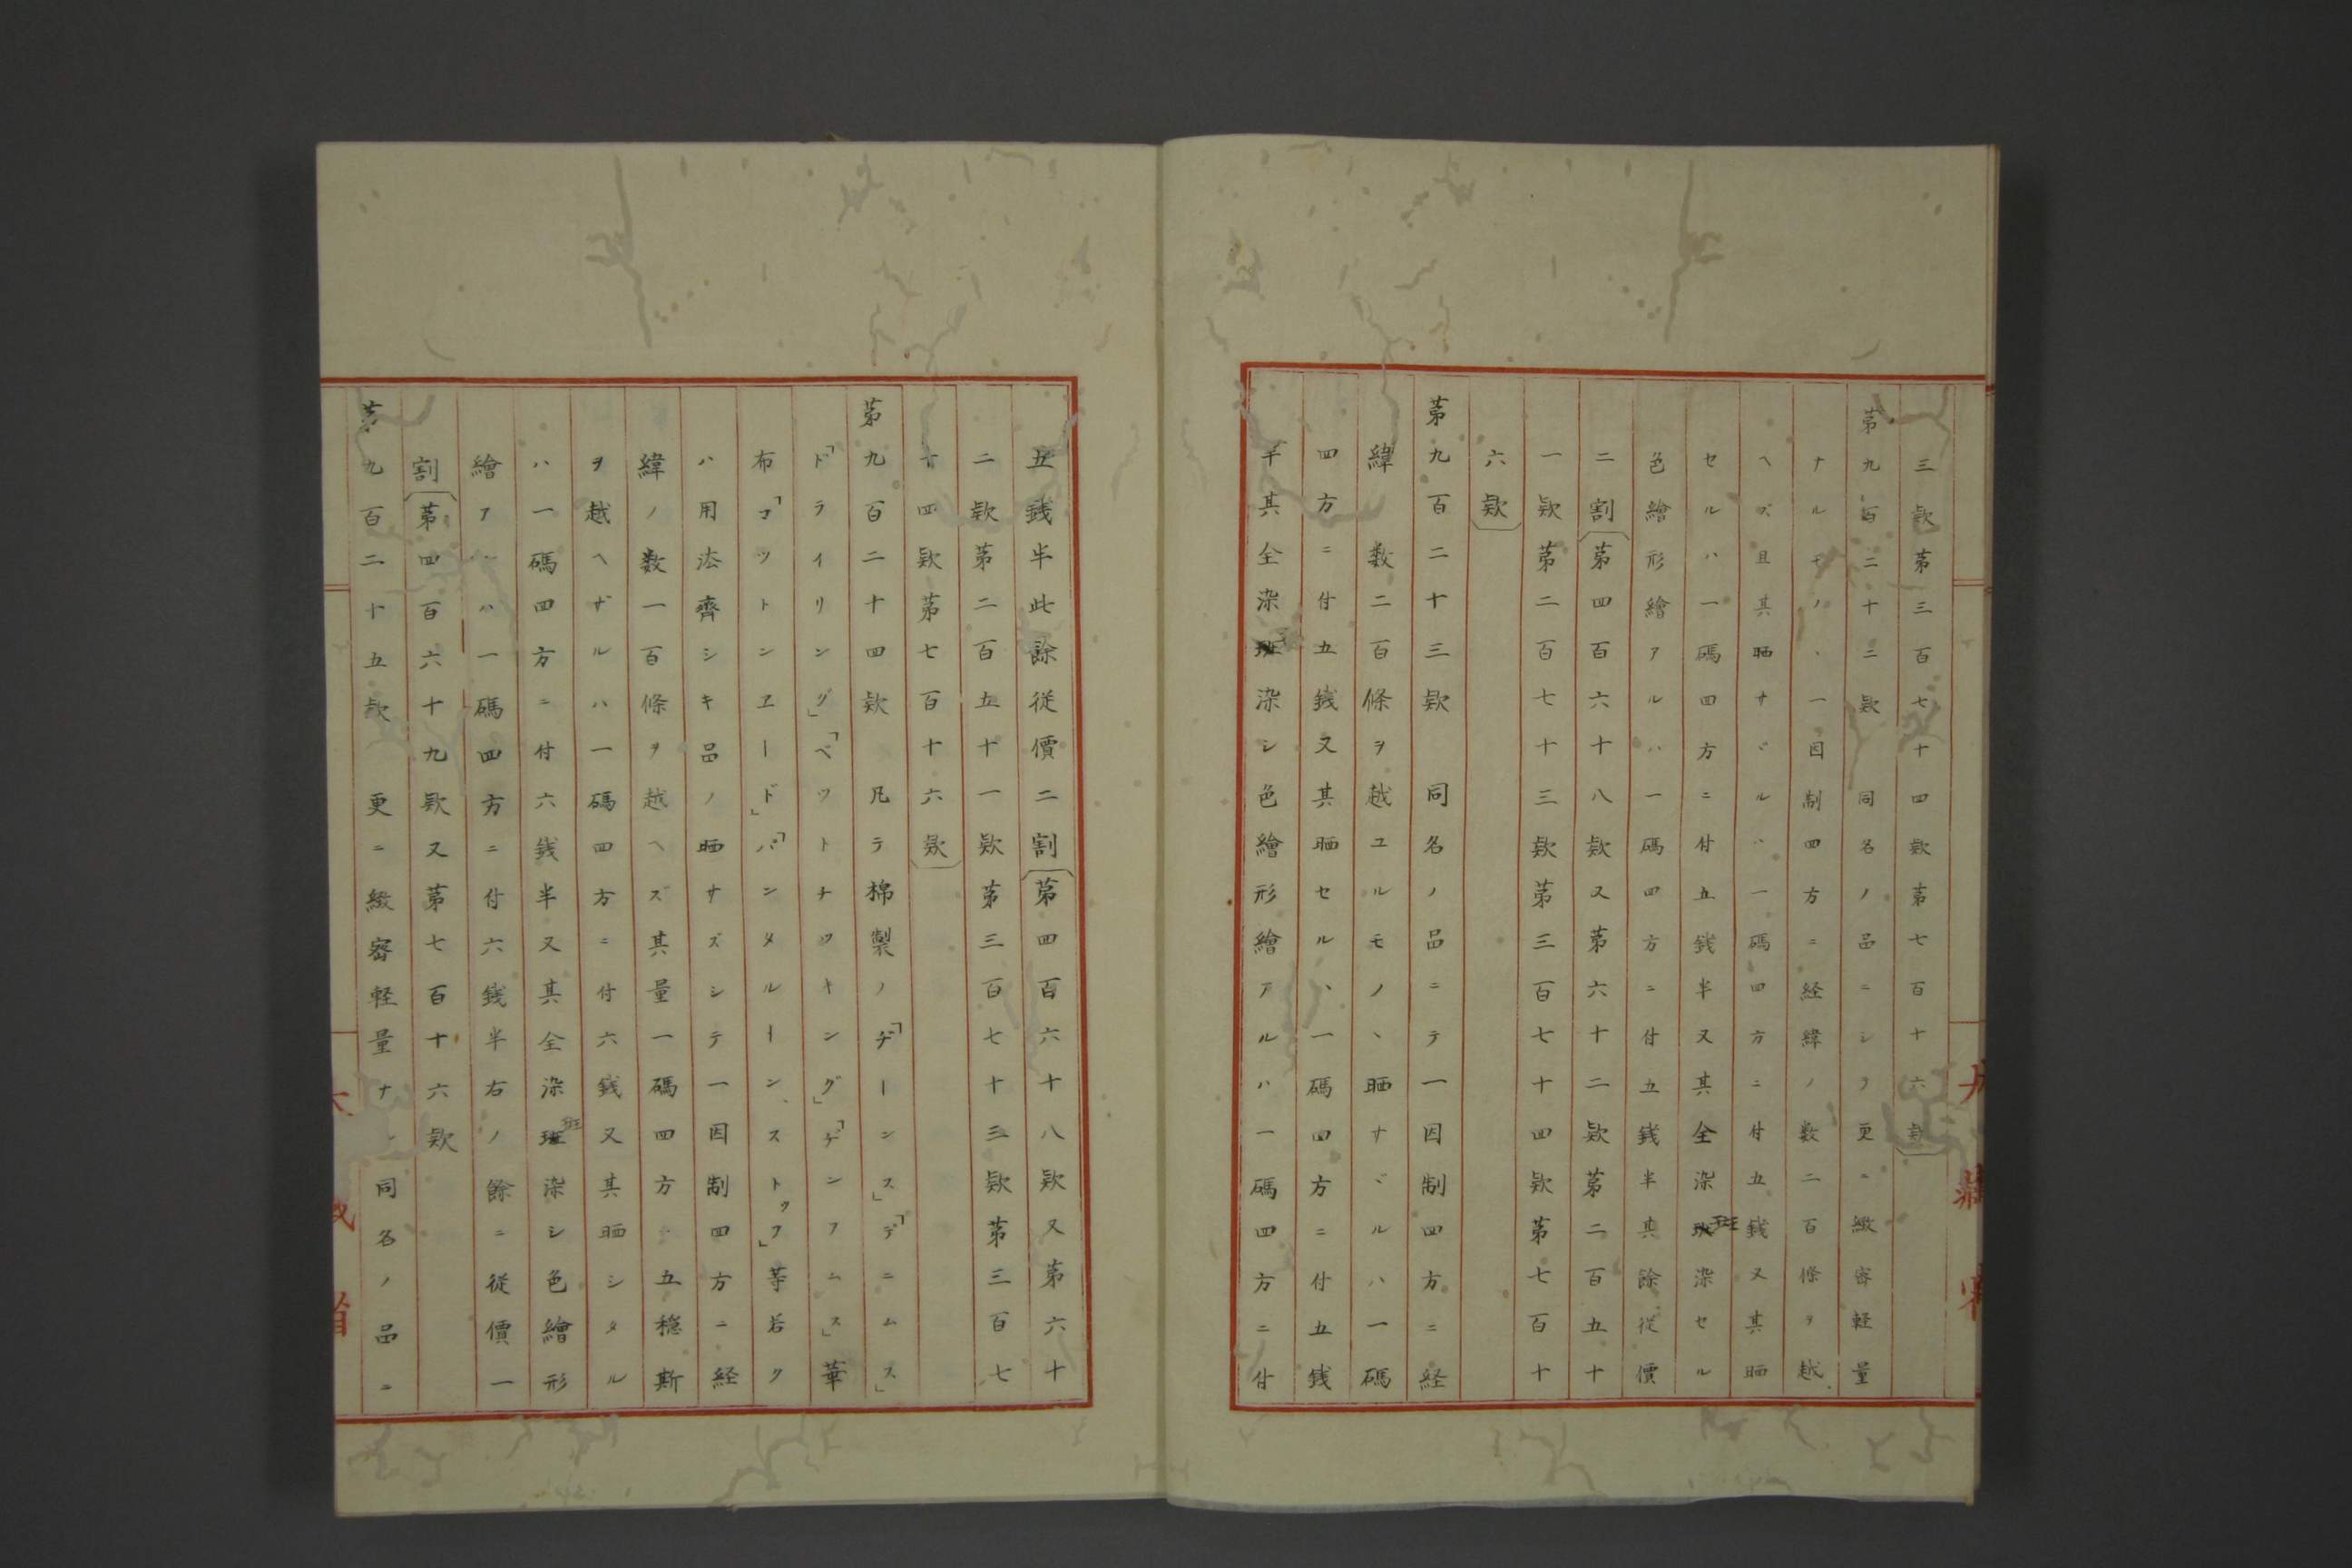 三款第三百七十四款第七百十六款〕
第九百二十二款　同名ノ品ニシヲ更ニ緻密軽量
ナルモノハ、一因制四方ニ経緯ノ数二百條ヲ越
ヘズ且其晒サヾルハ一碼四方ニ付五銭又其晒
セルハ一碼四方ニ付五銭半又其全染班染セル
色繪形繪アルハ一碼四方ニ付五銭半其餘従價
二割〔第四百六十八款又第六十二款第二百五十
一款第二百七十三款第三百七十四款第七百十
六款〕
第九百二十三款　同名ノ品ニテ一因制四方ニ経
緯数二百條ヲ越ユルモノ、晒サヾルハ一碼
四方ニ付五銭又其晒セルハ、一碼四方ニ付五銭
半其全染班染シ色繪形繪アルハ一碼四方ニ付
五銭半此餘従價二割〔第四百六十八款又第六十
二款第二百五十一款第三百七十三款第三百七
十四款第七百十六款〕
第九百二十四款　凡テ棉製ノ「ヂーンス」「デニムス」
「ドライリング」「ベットチッキング」「ヂンフムス」華
布「コットンヱード」「パンタルーン、ストッフ」等若ク
ハ用法齊シキ品ノ晒サズシテ一因制四方ニ経
緯ノ数一百條ヲ越ヘズ其量一碼四方ニ五穏斯
ヲ越ヘザルハ一碼四方ニ付六銭又其晒シタル
ハ一碼四方ニ付六銭半又其全染班染シ色繪形
繪アルハ一碼四方ニ付六銭半右ノ餘ニ従價一
割〔第四百六十九款又第七百十六款
第九百二十五款　更ニ緻密軽量ナル同名ノ品ニ
大藏省